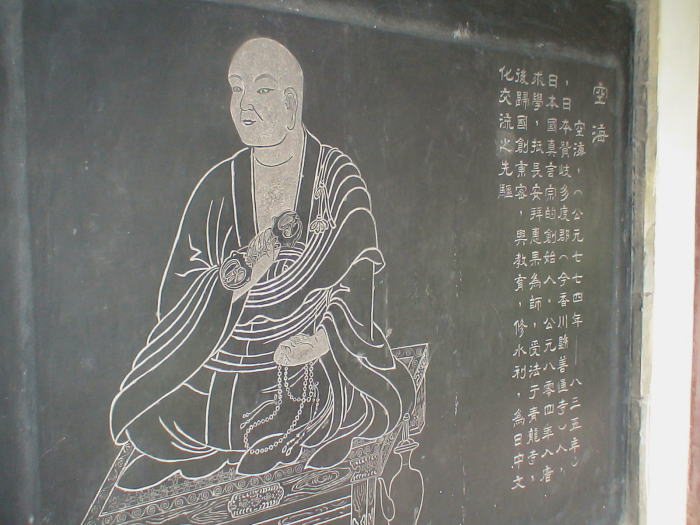 空海
空海，（公元七七四年——八三五年）
，日本贊岐多度郡（今香川縣善通寺）人，
日本國真言宗的創始人，公元八零四年入唐
求學，抵長安拜惠果為師，受法于青龍寺，
後歸國創東密，興教育，修水利，為日中文
化交流之先驅